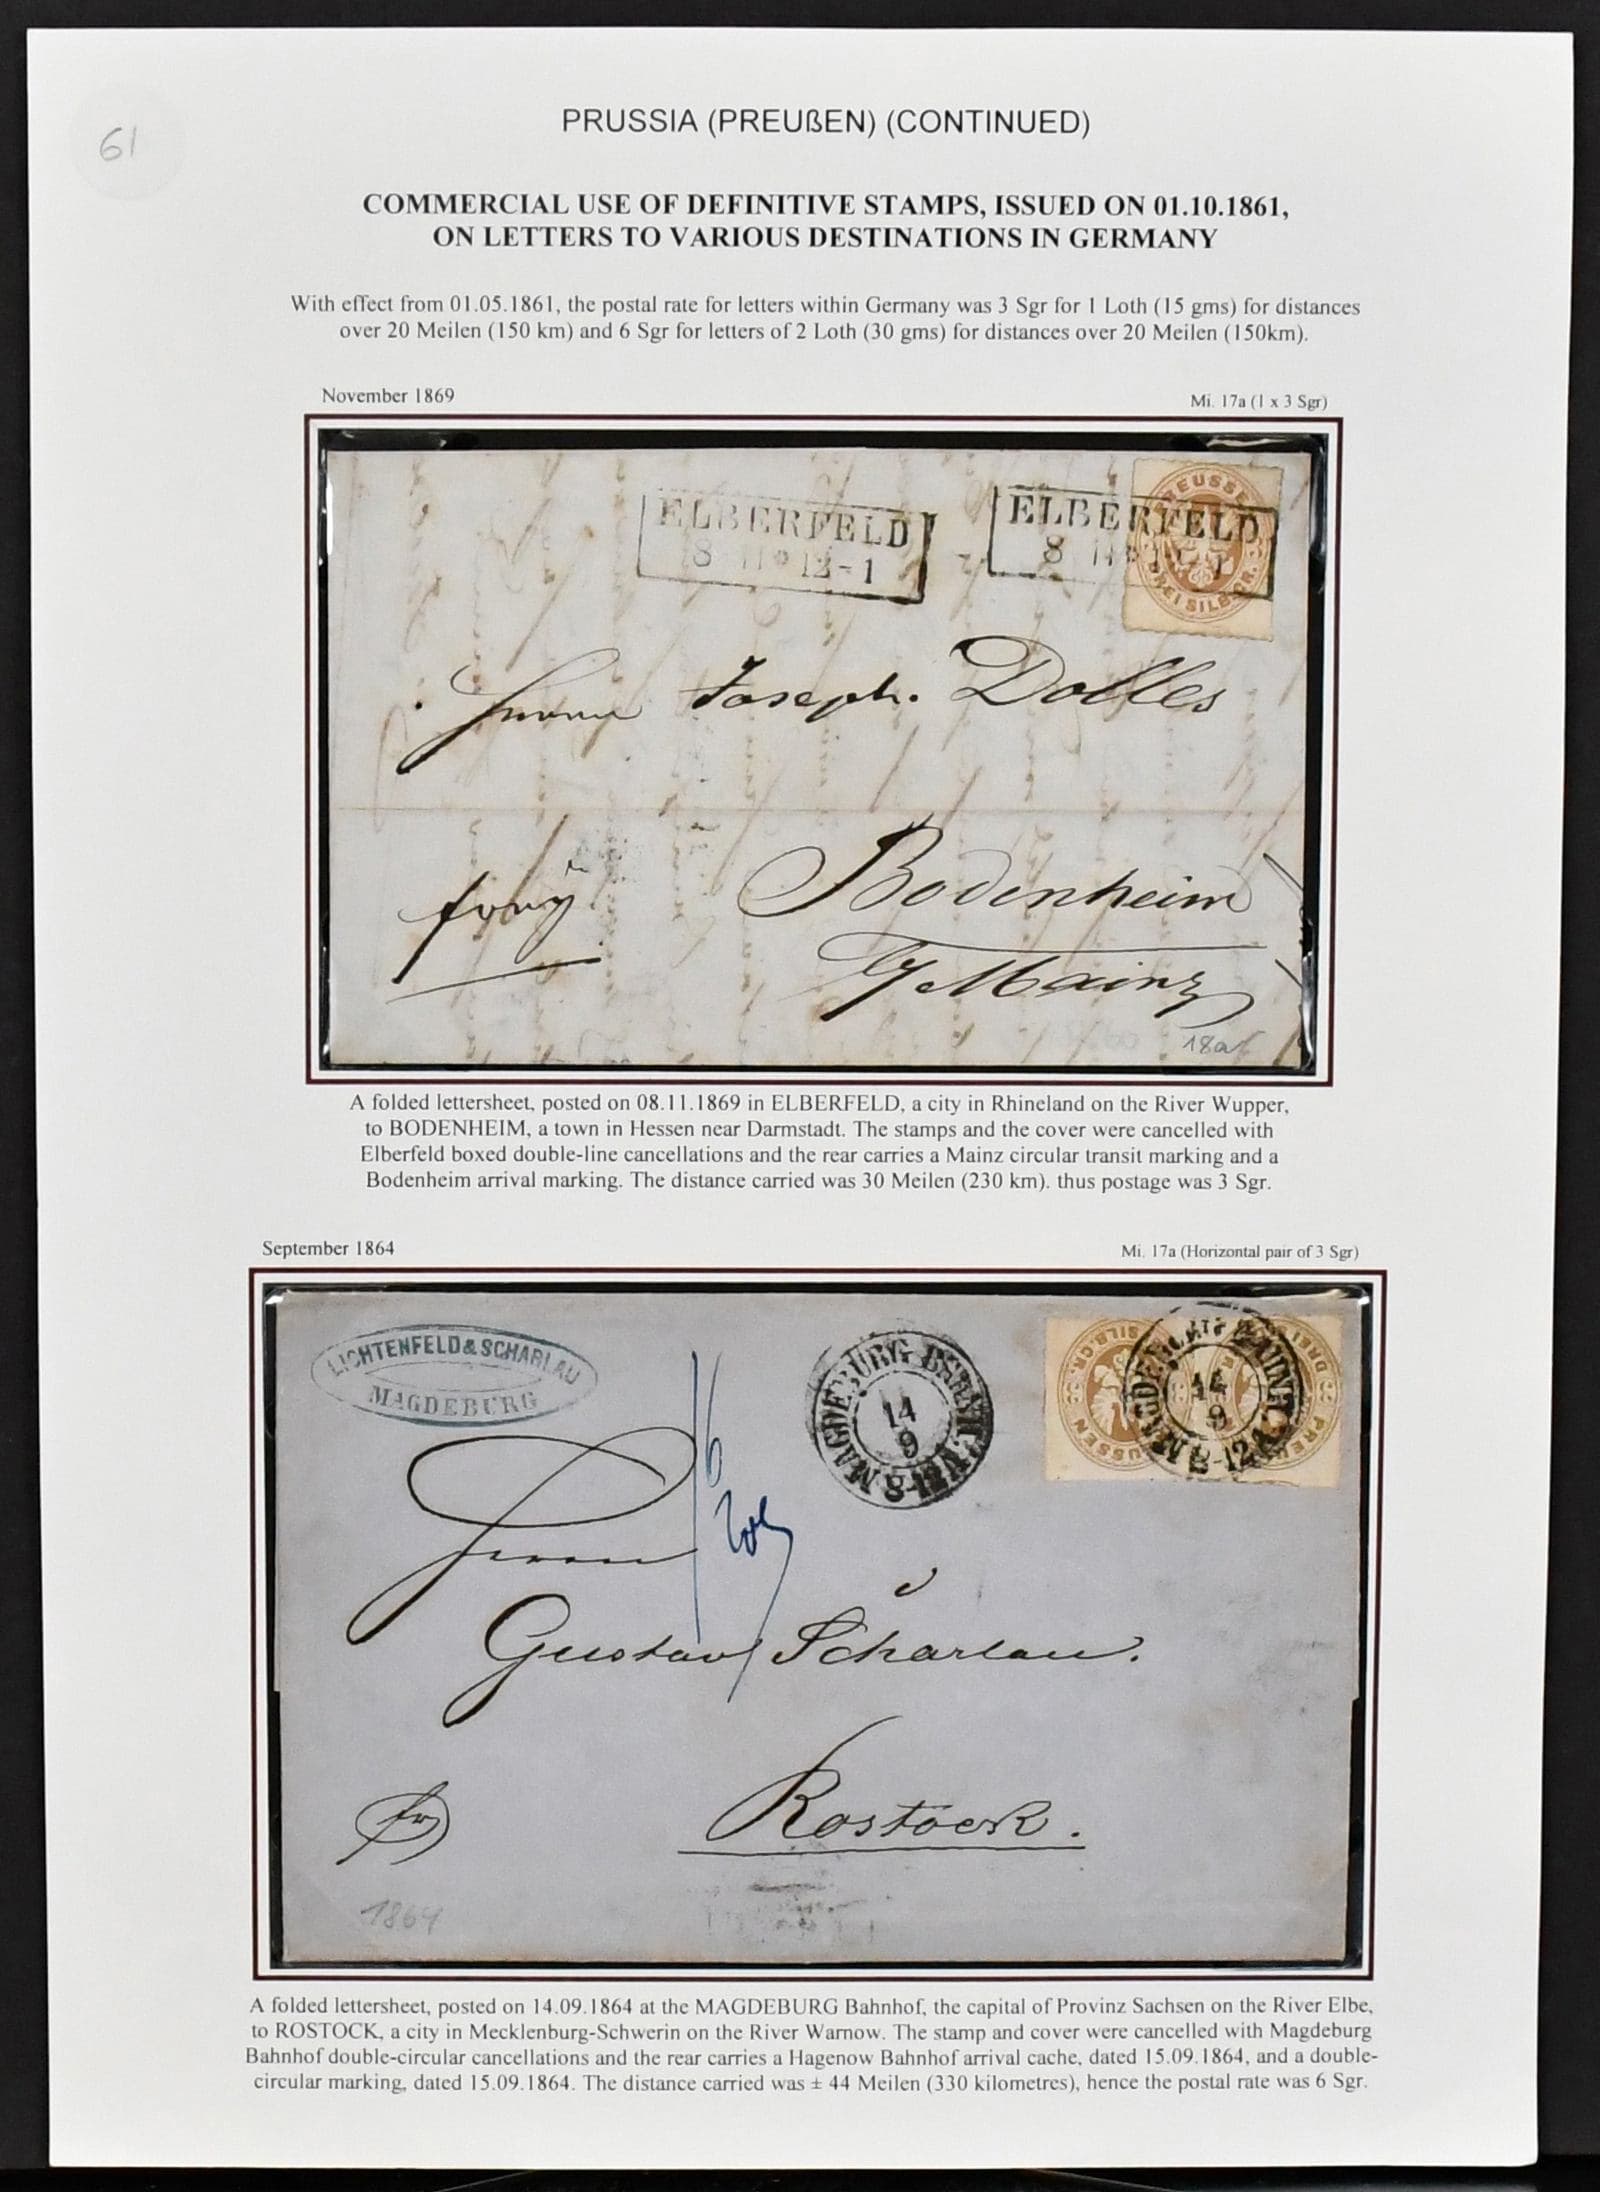 61
PRUSSIA (PREUßEN) (CONTINUED)
COMMERCIAL USE OF DEFINITIVE STAMPS, ISSUED ON 01.10.1861,
ON LETTERS TO VARIOUS DESTINATIONS IN GERMANY
With effect from 01.05.1861, the postal rate for letters within Germany was 3 Sgr for 1 Loth (15 gms) for distances
over 20 Meilen (150 km) and 6 Sgr for letters of 2 Loth (30 gms) for distances over 20 Meilen (150km).
November 1869
Mi. 17a (1 x 3 Sgr)
ELBERFELD
8 11 * 12-1
ELBERFELD
8 11
PREUSSEN
DREI SILB.GR.
Herrn Joseph Dolles
Bodenheim
b/ Mainz
18a
A folded lettersheet, posted on 08.11.1869 in ELBERFELD, a city in Rhineland on the River Wupper,
to BODENHEIM, a town in Hessen near Darmstadt. The stamps and the cover were cancelled with
Elberfeld boxed double-line cancellations and the rear carries a Mainz circular transit marking and a
Bodenheim arrival marking. The distance carried was 30 Meilen (230 km). thus postage was 3 Sgr.
September 1864
Mi. 17a (Horizontal pair of 3 Sgr)
LICHTENFELD & SCHARLAU
MAGDEBURG
MAGDEBURG
14
9
14
9
6
Herrn
Gustav Scharlau.
Rostock.
fr
1864
A folded lettersheet, posted on 14.09.1864 at the MAGDEBURG Bahnhof, the capital of Provinz Sachsen on the River Elbe,
to ROSTOCK, a city in Mecklenburg-Schwerin on the River Warnow. The stamp and cover were cancelled with Magdeburg
Bahnhof double-circular cancellations and the rear carries a Hagenow Bahnhof arrival cache, dated 15.09.1864, and a double-
circular marking, dated 15.09.1864. The distance carried was ± 44 Meilen (330 kilometres), hence the postal rate was 6 Sgr.